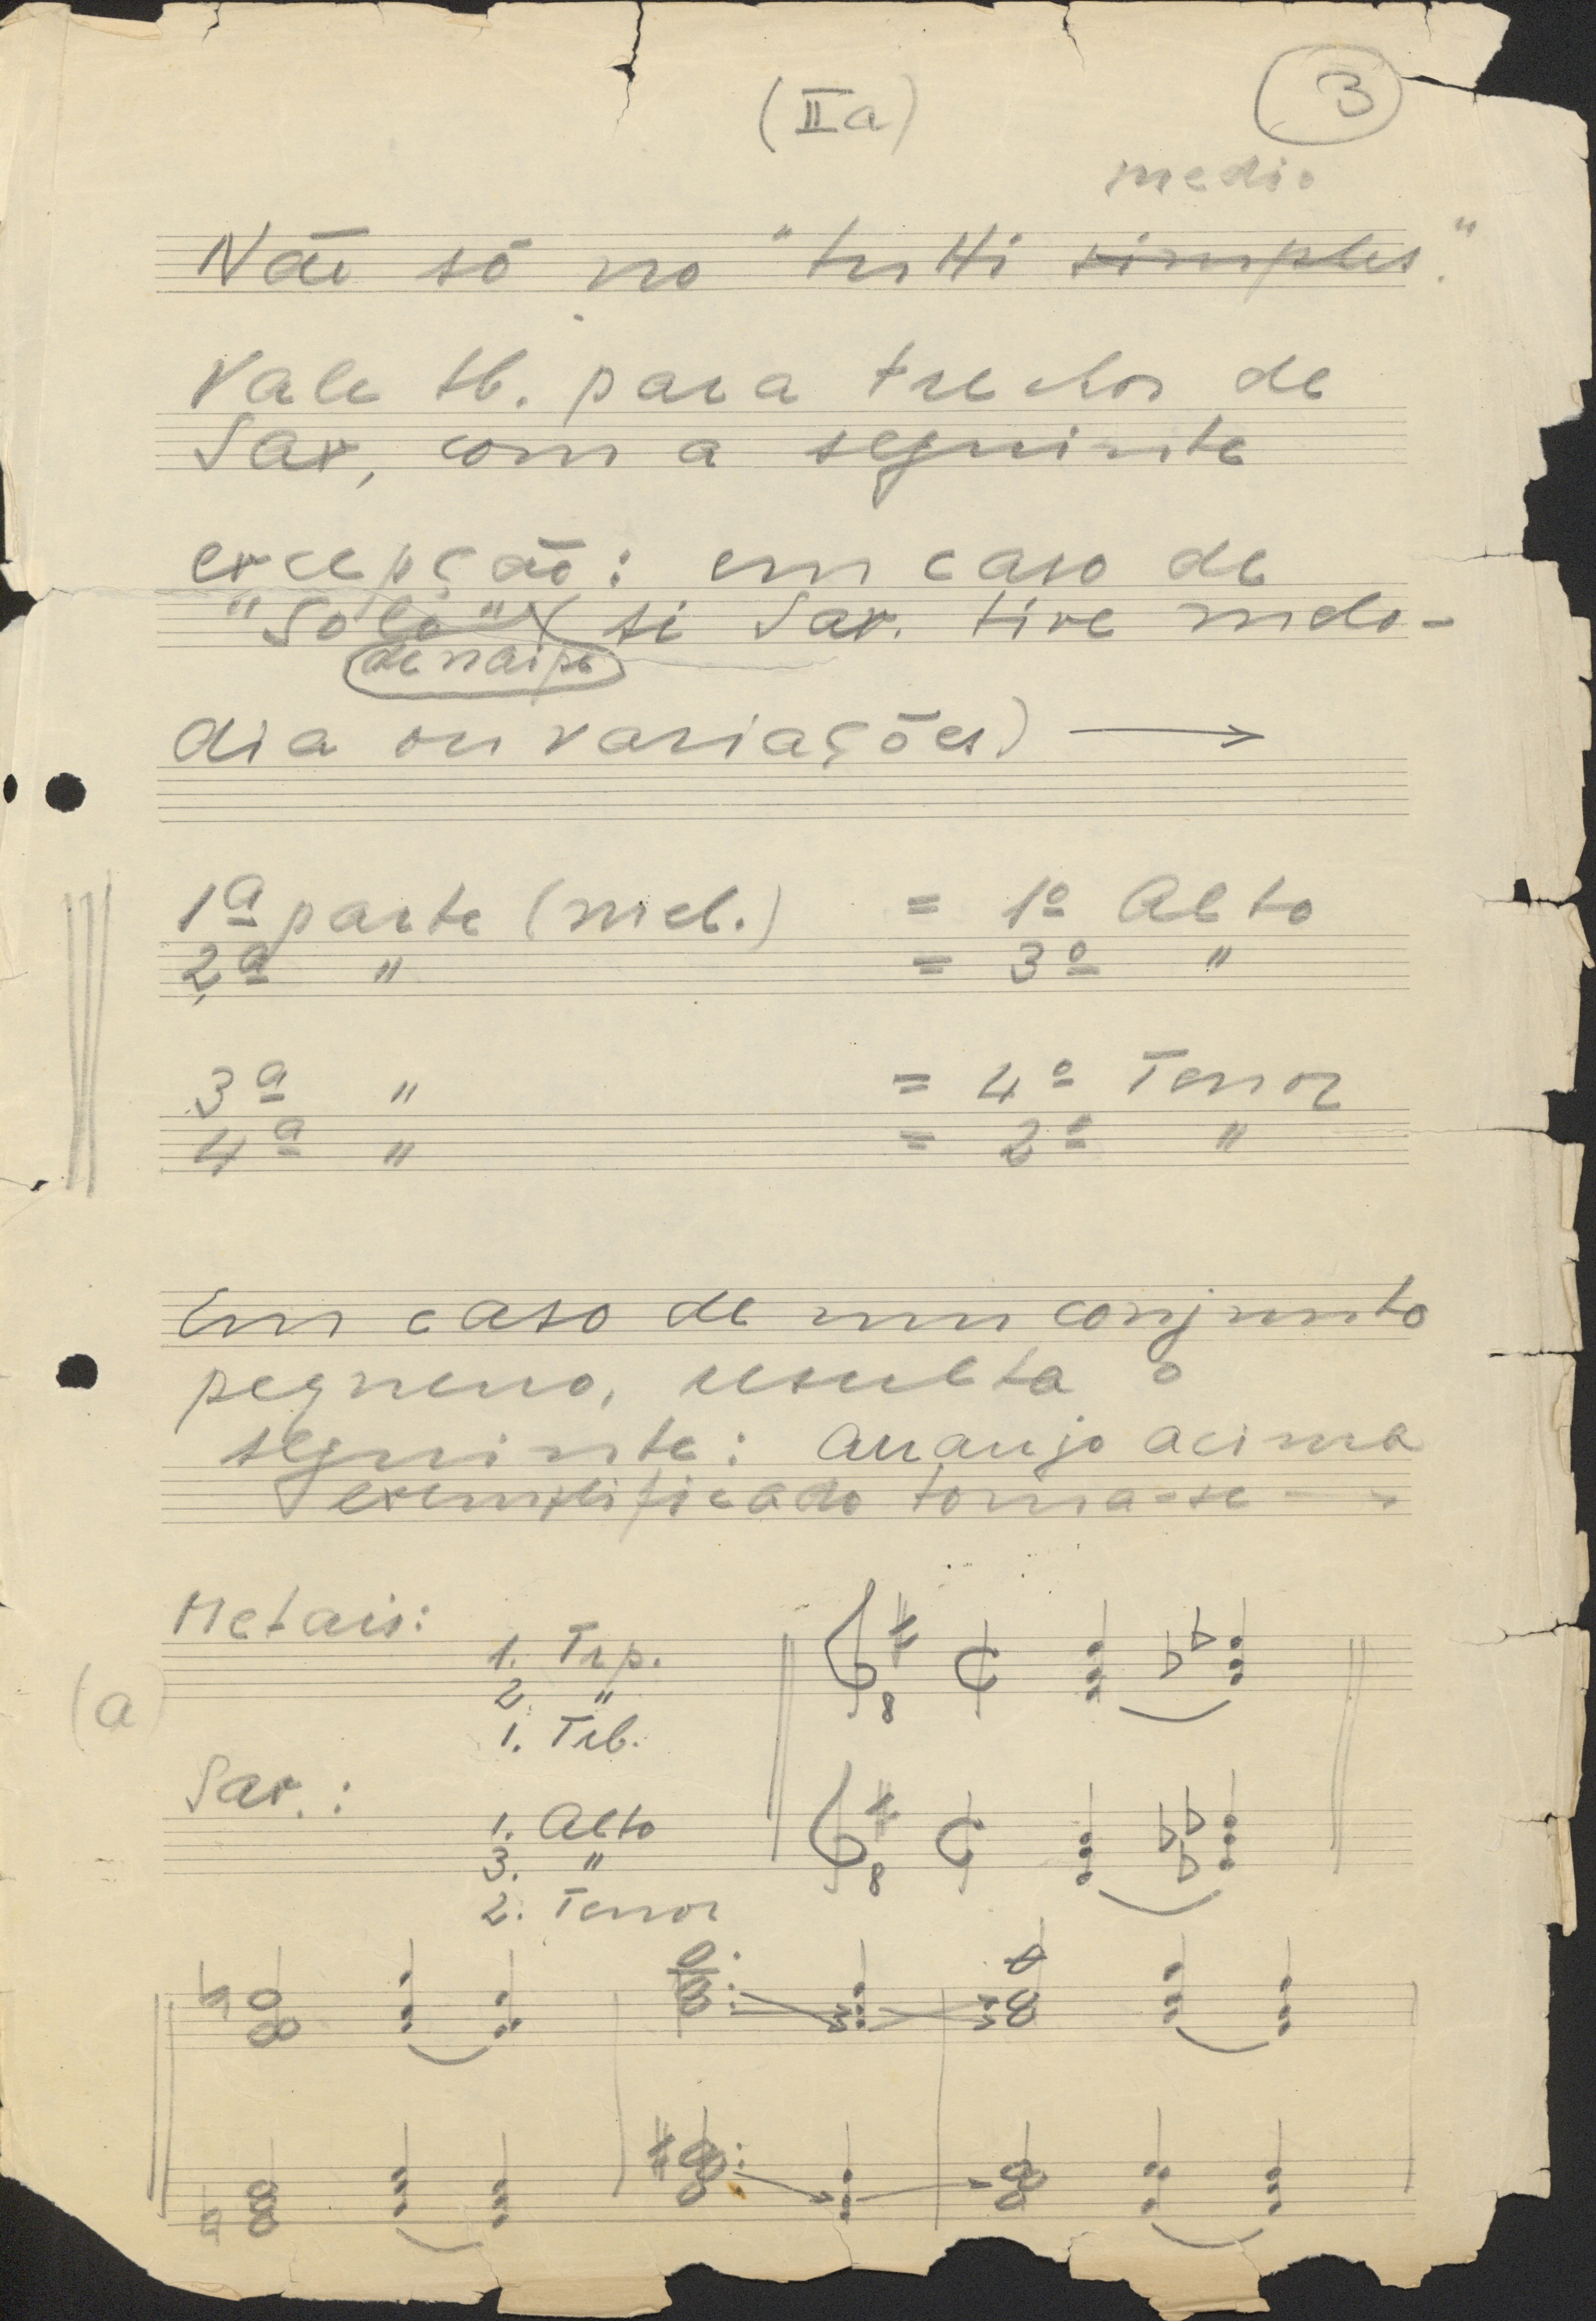 (IIa)
3
medio
Não só no "tutti simples."
Vale tb. para trechos de
Sax, com a seguinte
excepção: em caso de
"Solo" (si Sax. tive melo-
de naipe
dia ou variações) →
1ª parte (mel.) = 1º Alto
2ª " = 3º "
3ª " = 4º Tenor
4ª " = 2º "
Em caso de um conjunto
pequeno, resulta o
seguinte: Arranjo acima
exemplificado torna-se →
Metais:
1. Trp.
2. "
1. Trb.
(a)
Sax.:
1. Alto
3. "
2. Tenor
8
8